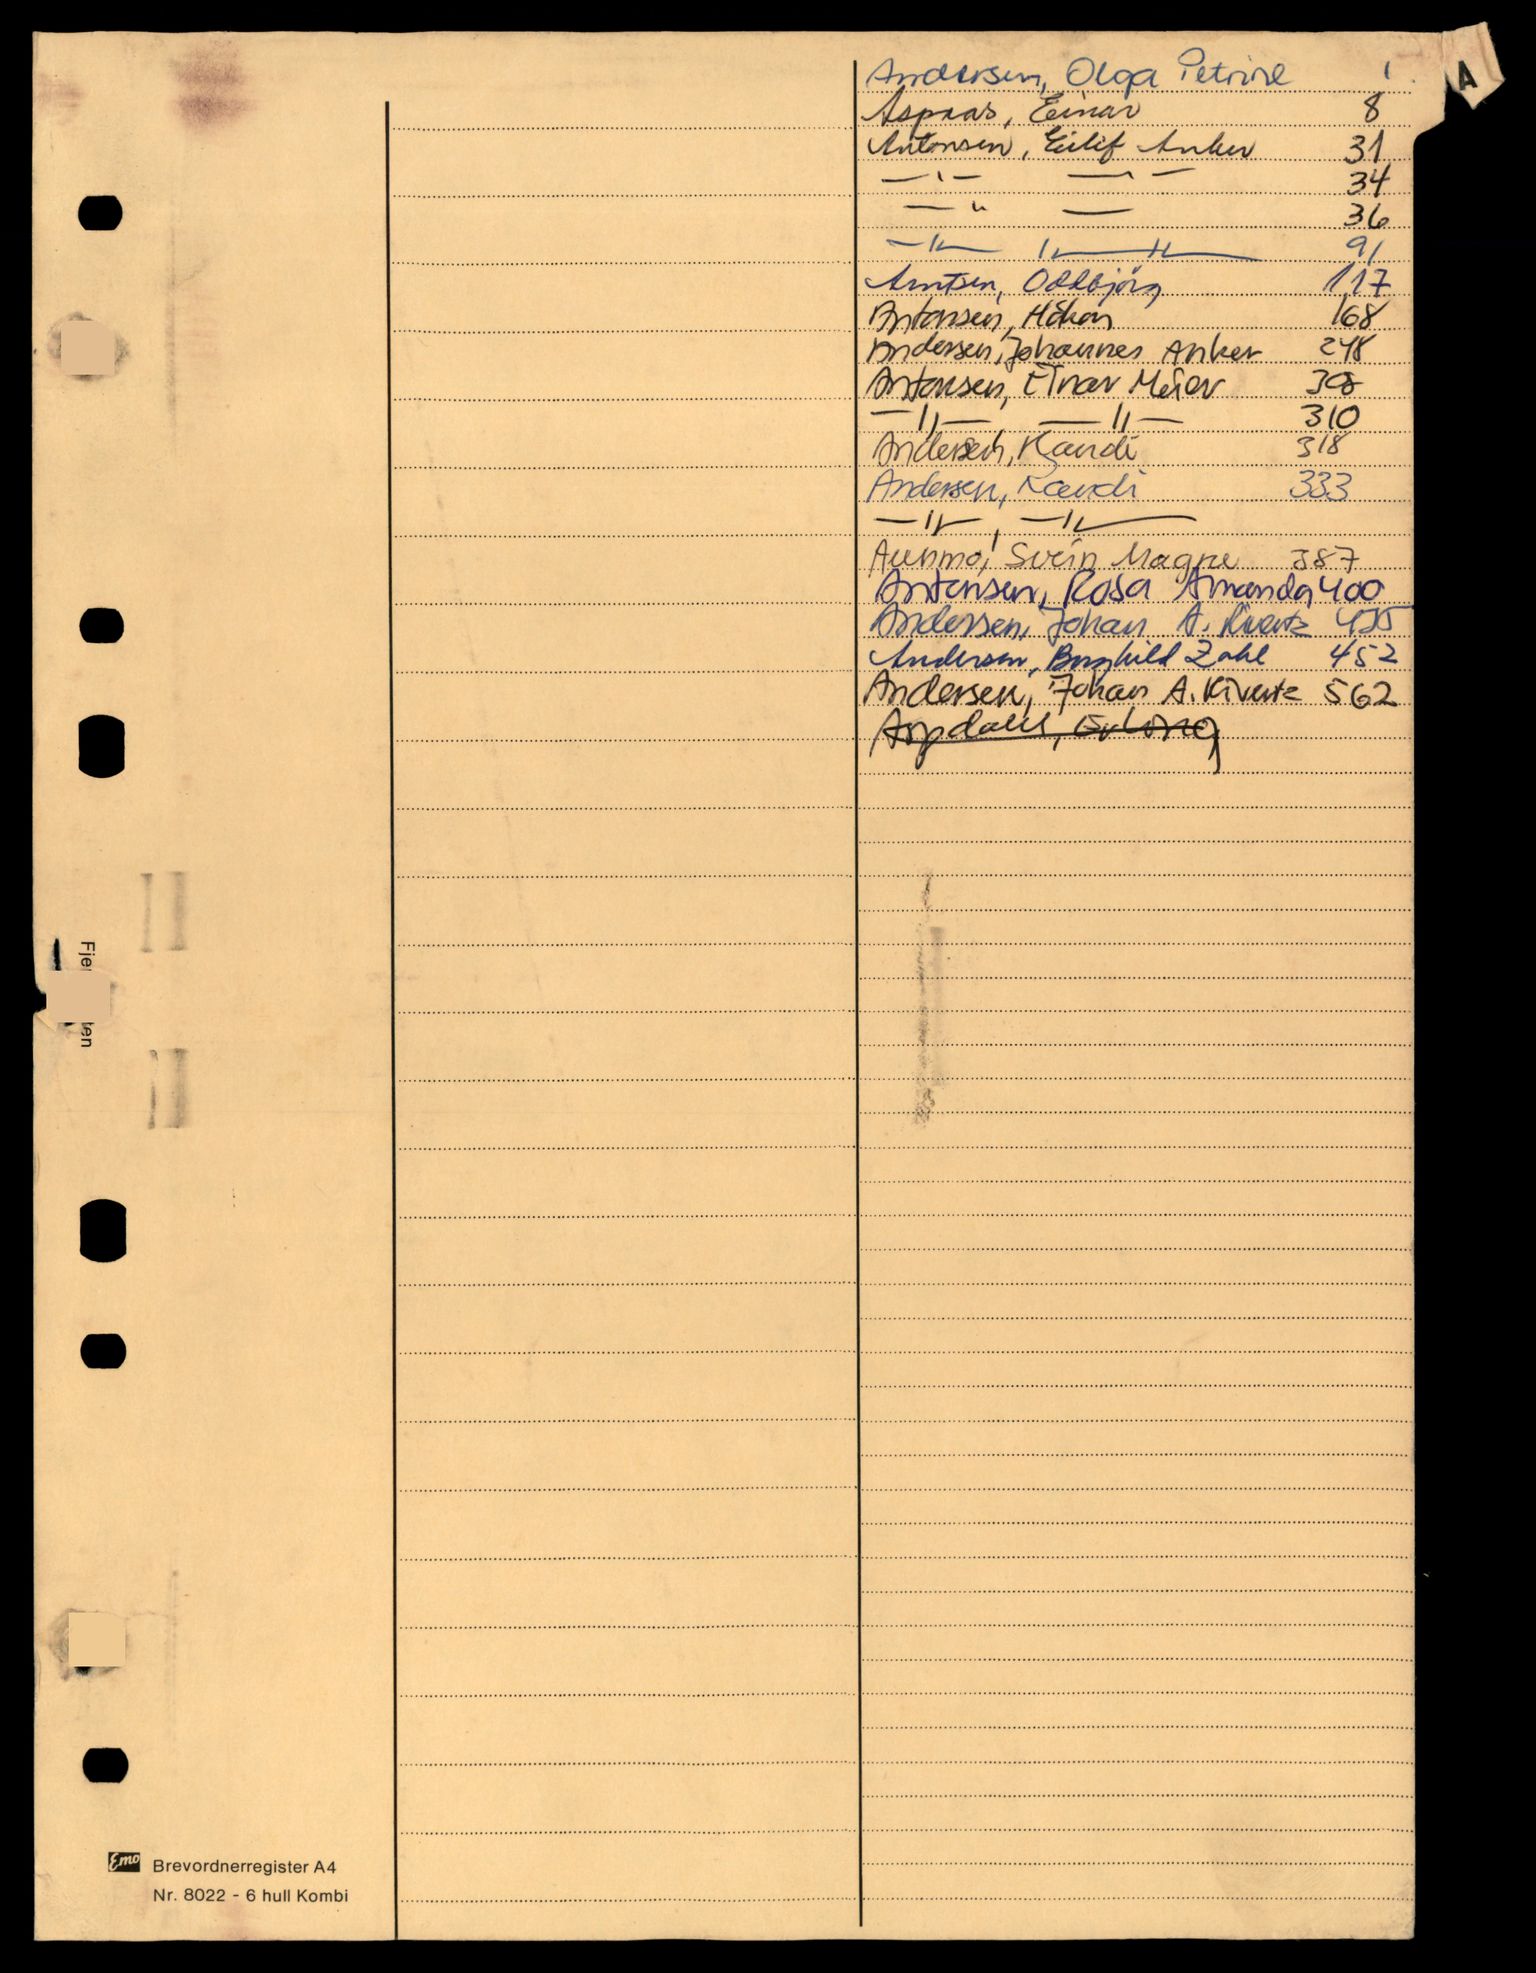 A
Andersen, Olga Petrine 1
Aspaas, Einar 8
Antonsen, Eilif Anker 31
—"— —"— 34
—"— —"— 36
—"— —"— 91
Arntsen, Oddbjörg 117
Antonsen, Håkon 168
Andersen, Johannes Anker 248
Antonsen, Einar Meier 308
—"— —"— 310
Andersen, Randi 318
Andersen, Randi 333
—"—, —"—
Aunmo, Svein Magne 387
Antonsen, Rosa Amanda 400
Andersen, Johan A. Kivertz 435
Andersen, Borghild Zahl 452
Andersen, Johan A. Kivertz 562
Aspdahl, Erling
Emo Brevordnerregister A4
Nr. 8022 - 6 hull Kombi